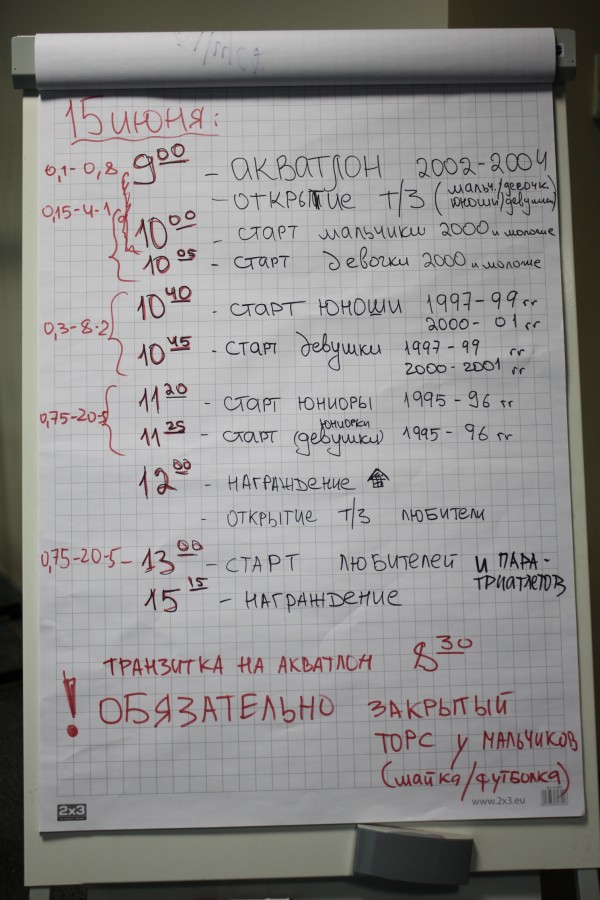 15 июня:
0,1-0,8 9 00 - АКВАТЛОН 2002-2004
- ОТКРЫТИЕ Т/З (мальч./девочк. юноши/девушки)
0,15-4-1 10 00 - СТАРТ мальчики 2000 и моложе
10 05 - СТАРТ девочки 2000 и моложе
10 40 - СТАРТ ЮНОШИ 1997-99 гг
2000-01 гг
0,3-8-2
10 45 - СТАРТ девушки 1997-99 гг
2000-2001 гг
11 20 - СТАРТ ЮНИОРЫ 1995-96 гг
0,75-20-5
юниорки
11 25 - СТАРТ (девушки) 1995-96 гг
12 00 - НАГРАЖДЕНИЕ
- ОТКРЫТИЕ Т/З ЛЮБИТЕЛИ
0,75-20-5 - 13 00 - СТАРТ ЛЮБИТЕЛЕЙ И ПАРА-
ТРИАТЛЕТОВ
15 15 - НАГРАЖДЕНИЕ
ТРАНЗИТКА НА АКВАТЛОН 8 30
! ОБЯЗАТЕЛЬНО ЗАКРЫТЫЙ
ТОРС У МАЛЬЧИКОВ
(майка/футболка)
2x3
www.2x3.eu